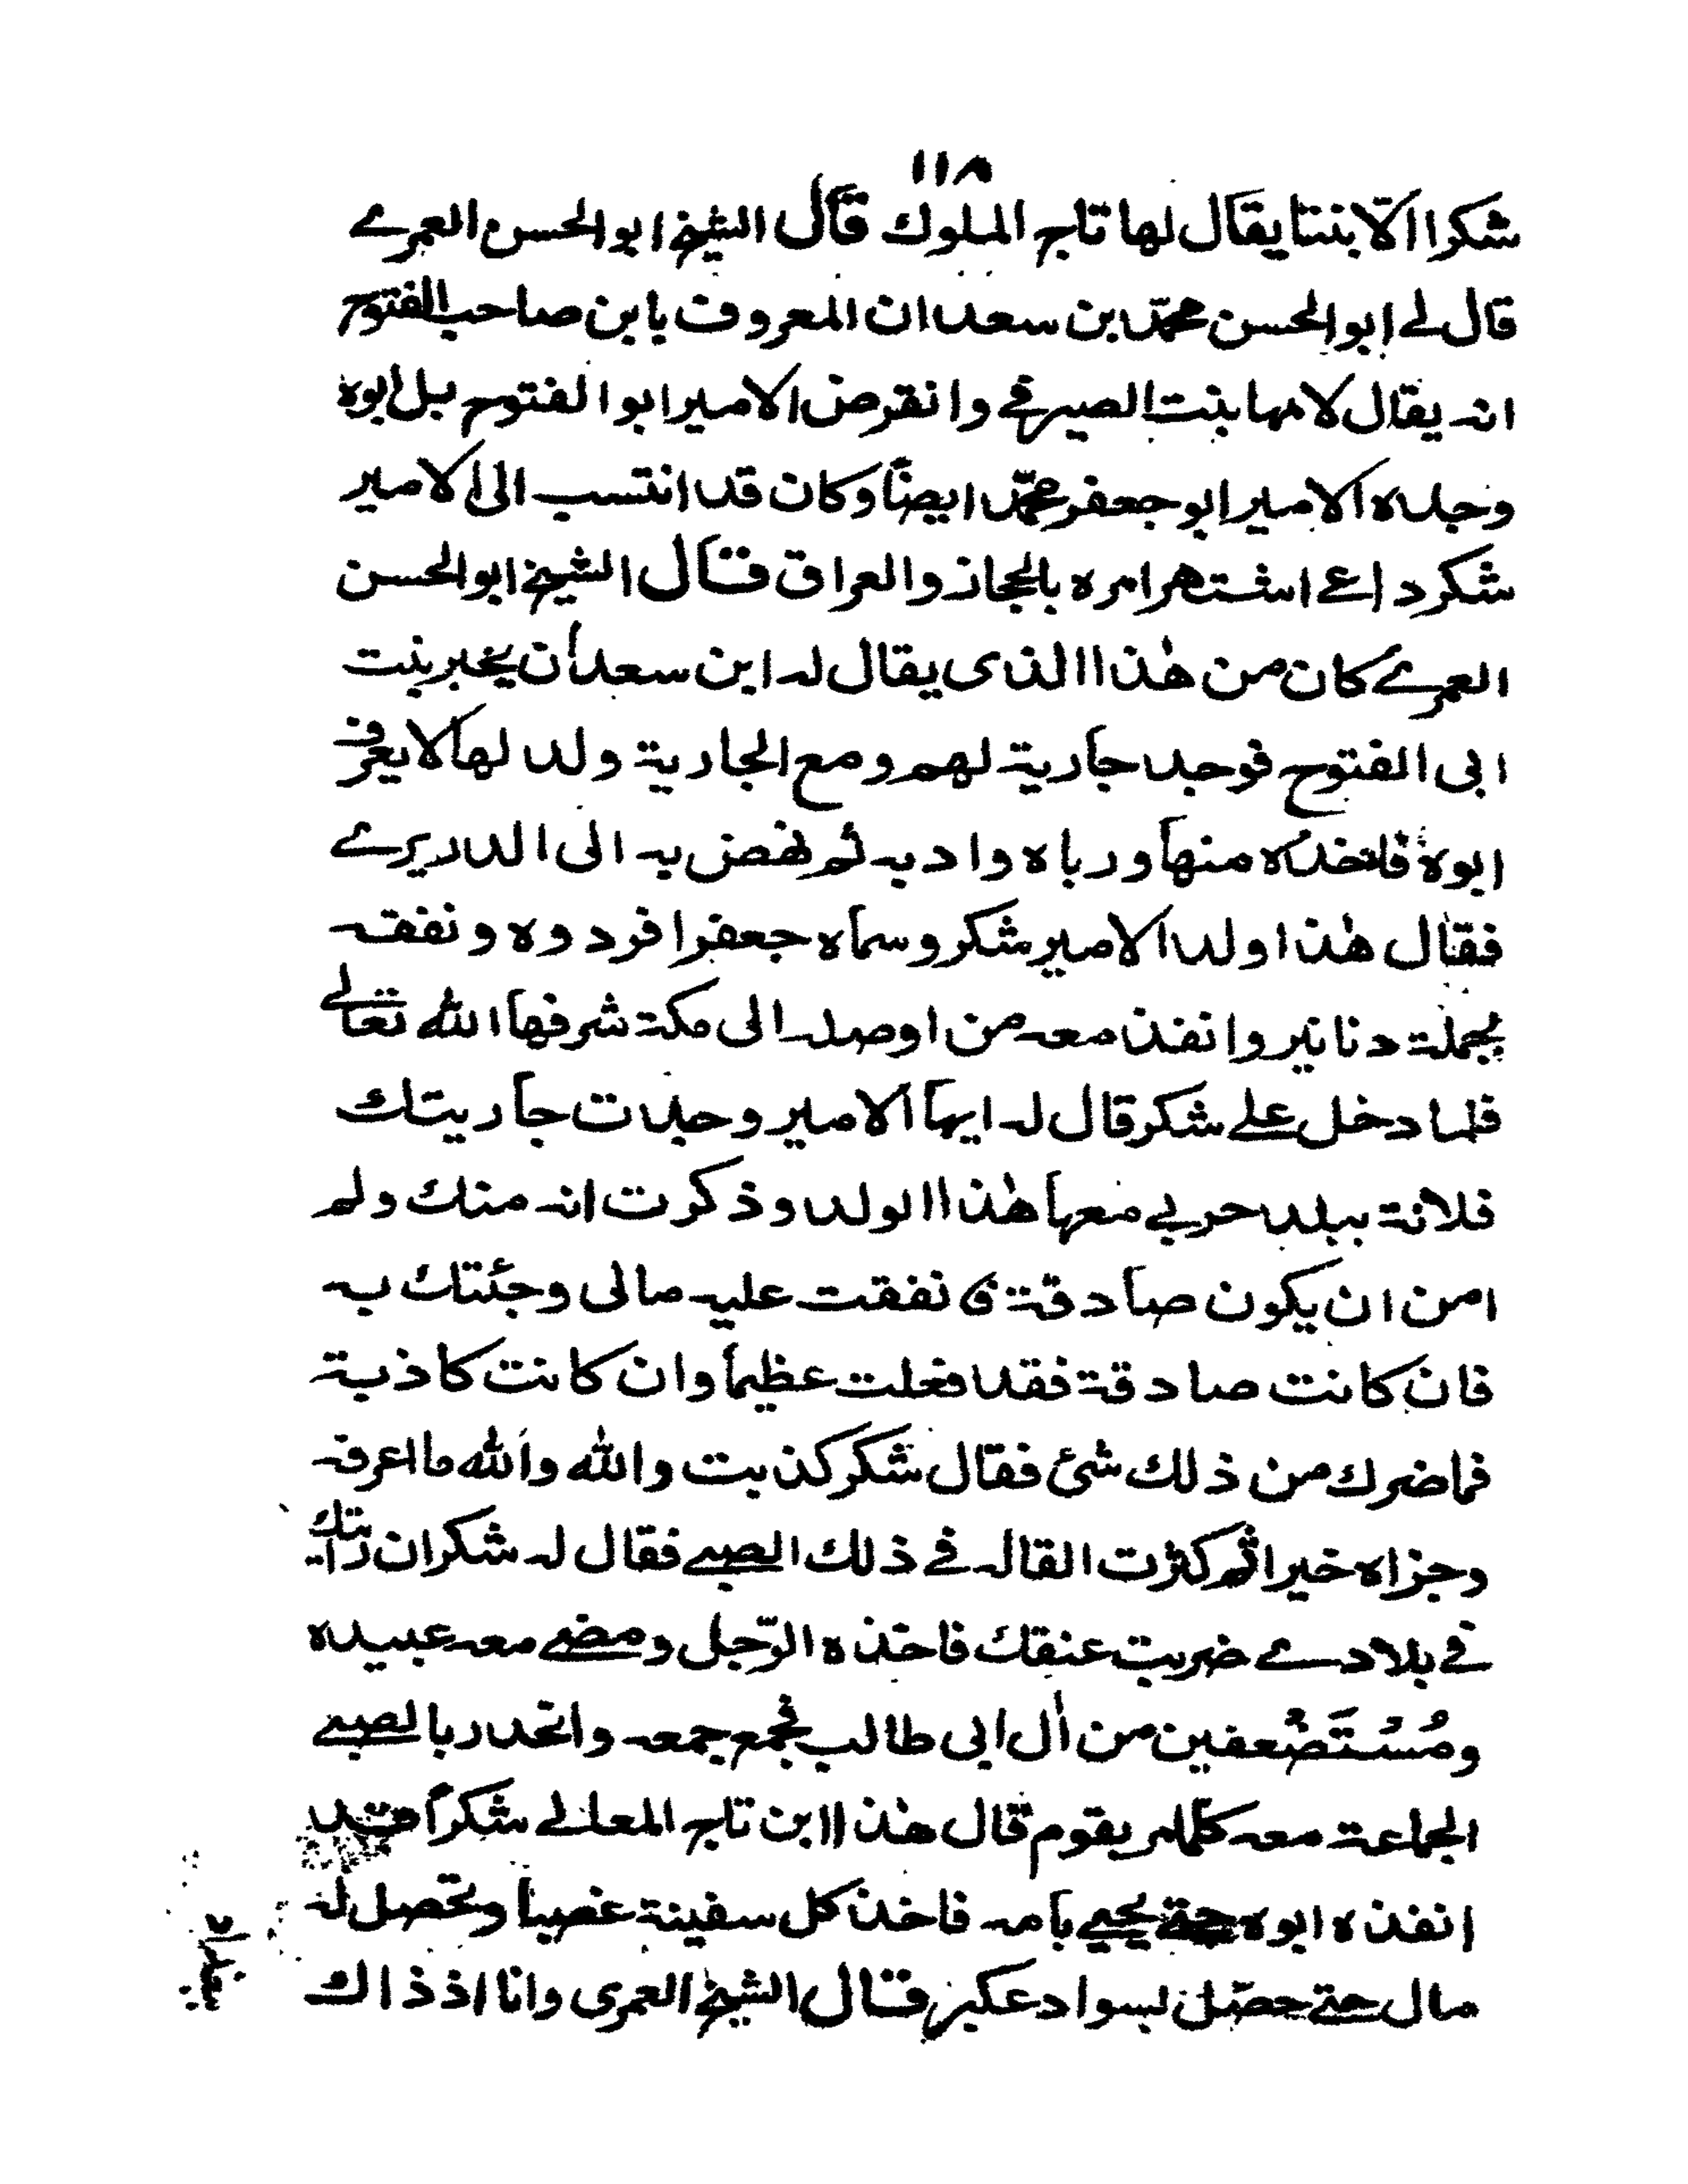 ١١٨
شكرا الا بنتا يقال لها تاج الملوك قال الشيخ ابو الحسن العمرے
قال لے ابو الحسن محمّد بن سعدان المعروف بابن صاحب الفتوح
انه يقال لامها بنت الصيرفے وانقرض الامير ابو الفتوح بل ابوه
وجده الامير ابو جعفر محمّد ايضًا وكان قد انتسب الى الامير
شكر داعے اشتهر امره بالحجاز والعراق قال الشيخ ابو الحسن
العمرے كان من هٰذا الذى يقال له ابن سعدان يخبر بنت
ابى الفتوح فوجد جارية لهم ومع الجارية ولد لها لا يعرف
ابوه فاتخذه منها ورباه وادبه ثم نهض به الى الدريرے
فقال هٰذا ولد الامير شكر وسماه جعفرا فردوه ونفقه
بجملة دنانير وانفذ معه من اوصله الى مكة شرفها الله تعالے
فلما دخل علے شكر قال له ايها الامير وجدت جاريتك
فلانة ببلد حربے معها هٰذا الولد وذكرت انه منك ولم
امن ان يكون صادقة فانفقت عليه مالى وجئتك به
فان كانت صادقة فقد فعلت عظيما وان كانت كاذبة
فما ضرك من ذلك شئ فقال شكر كذبت والله والله ما اعرفه
وجزاه خيرا ثم كثرت القاله فے ذلك الصبے فقال له شكر ان رايتك
فے بلادے ضربت عنقك فاخذه الرّجل ومضے معه عبيده
ومُسْتَضْعفين من اٰل ابى طالب فجمع جمعه وانحدر بالصبے
الجماعة معه كلما مر بقوم قال هٰذا ابن تاج المعالے شكراً قد
انفذه ابوه حتے يحيے بامه فاخذ كل سفينة غصبا وتحصل له
مال حتے حصّل بسواد عكبر قال الشيخ العمرى وانا اذ ذاك